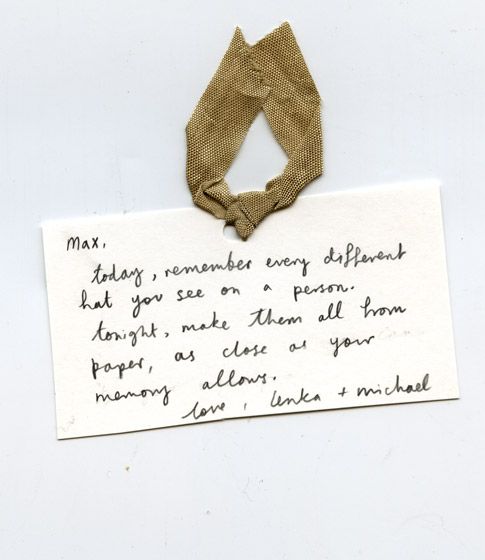 Max,
today, remember every different
hat you see on a person.
tonight, make them all from
paper, as close as your
memory allows.
love, lenka + michael